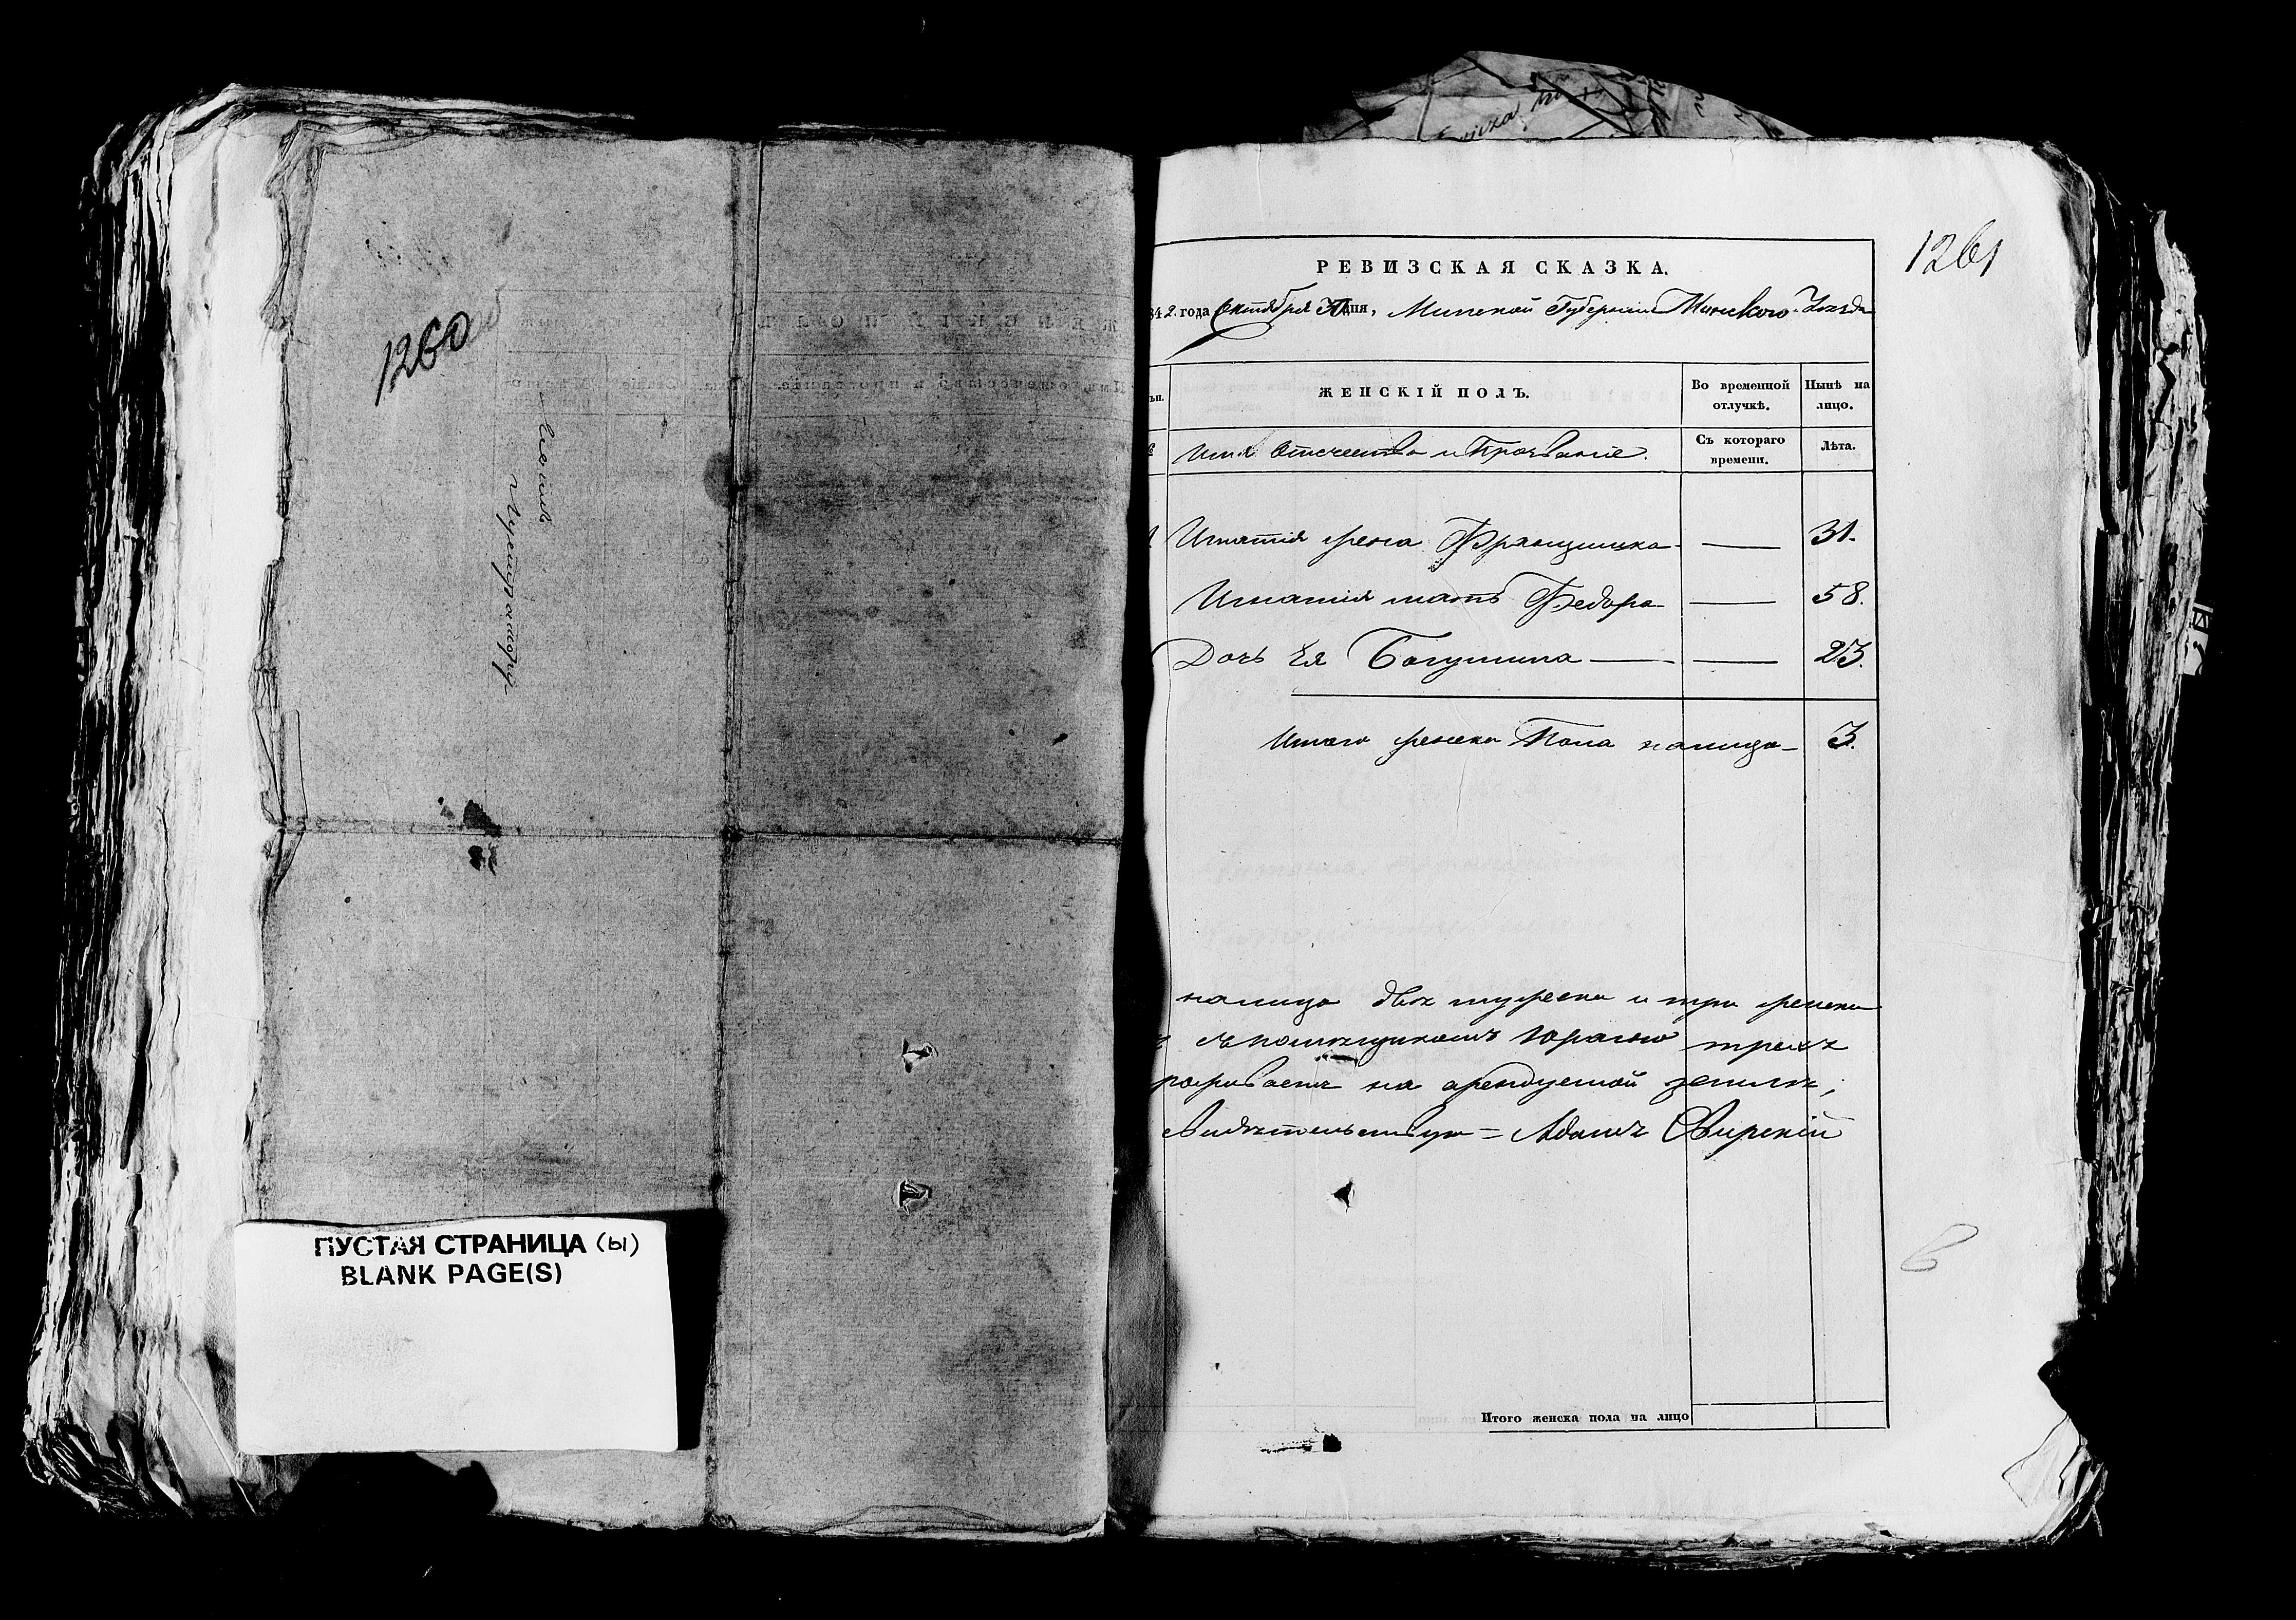 1260
ПУСТАЯ СТРАНИЦА (ы)
BLANK PAGE(S)
1261
РЕВИЗСКАЯ СКАЗКА.
842. года Октября 30 дня, Минской Губернии Минского Уезда
ЖЕНСКІЙ ПОЛЪ.
Во временной отлучкѣ.
Нынѣ на лицо.
Имя Отчество и Прозваніе.
Съ котораго времени.
Лѣта.
Игнатія жена Францишка — 31.
Игнатія мать Федора — 58.
Дочь Ея Богумила — 23.
Итого женска Пола налицо — 3.
налицо двѣ мужеска и три женска
помѣщикомъ Юраго трехъ
на арендуемой землѣ;
свидѣтельствую = Адамъ Свирскій
Итого женска пола на лицо